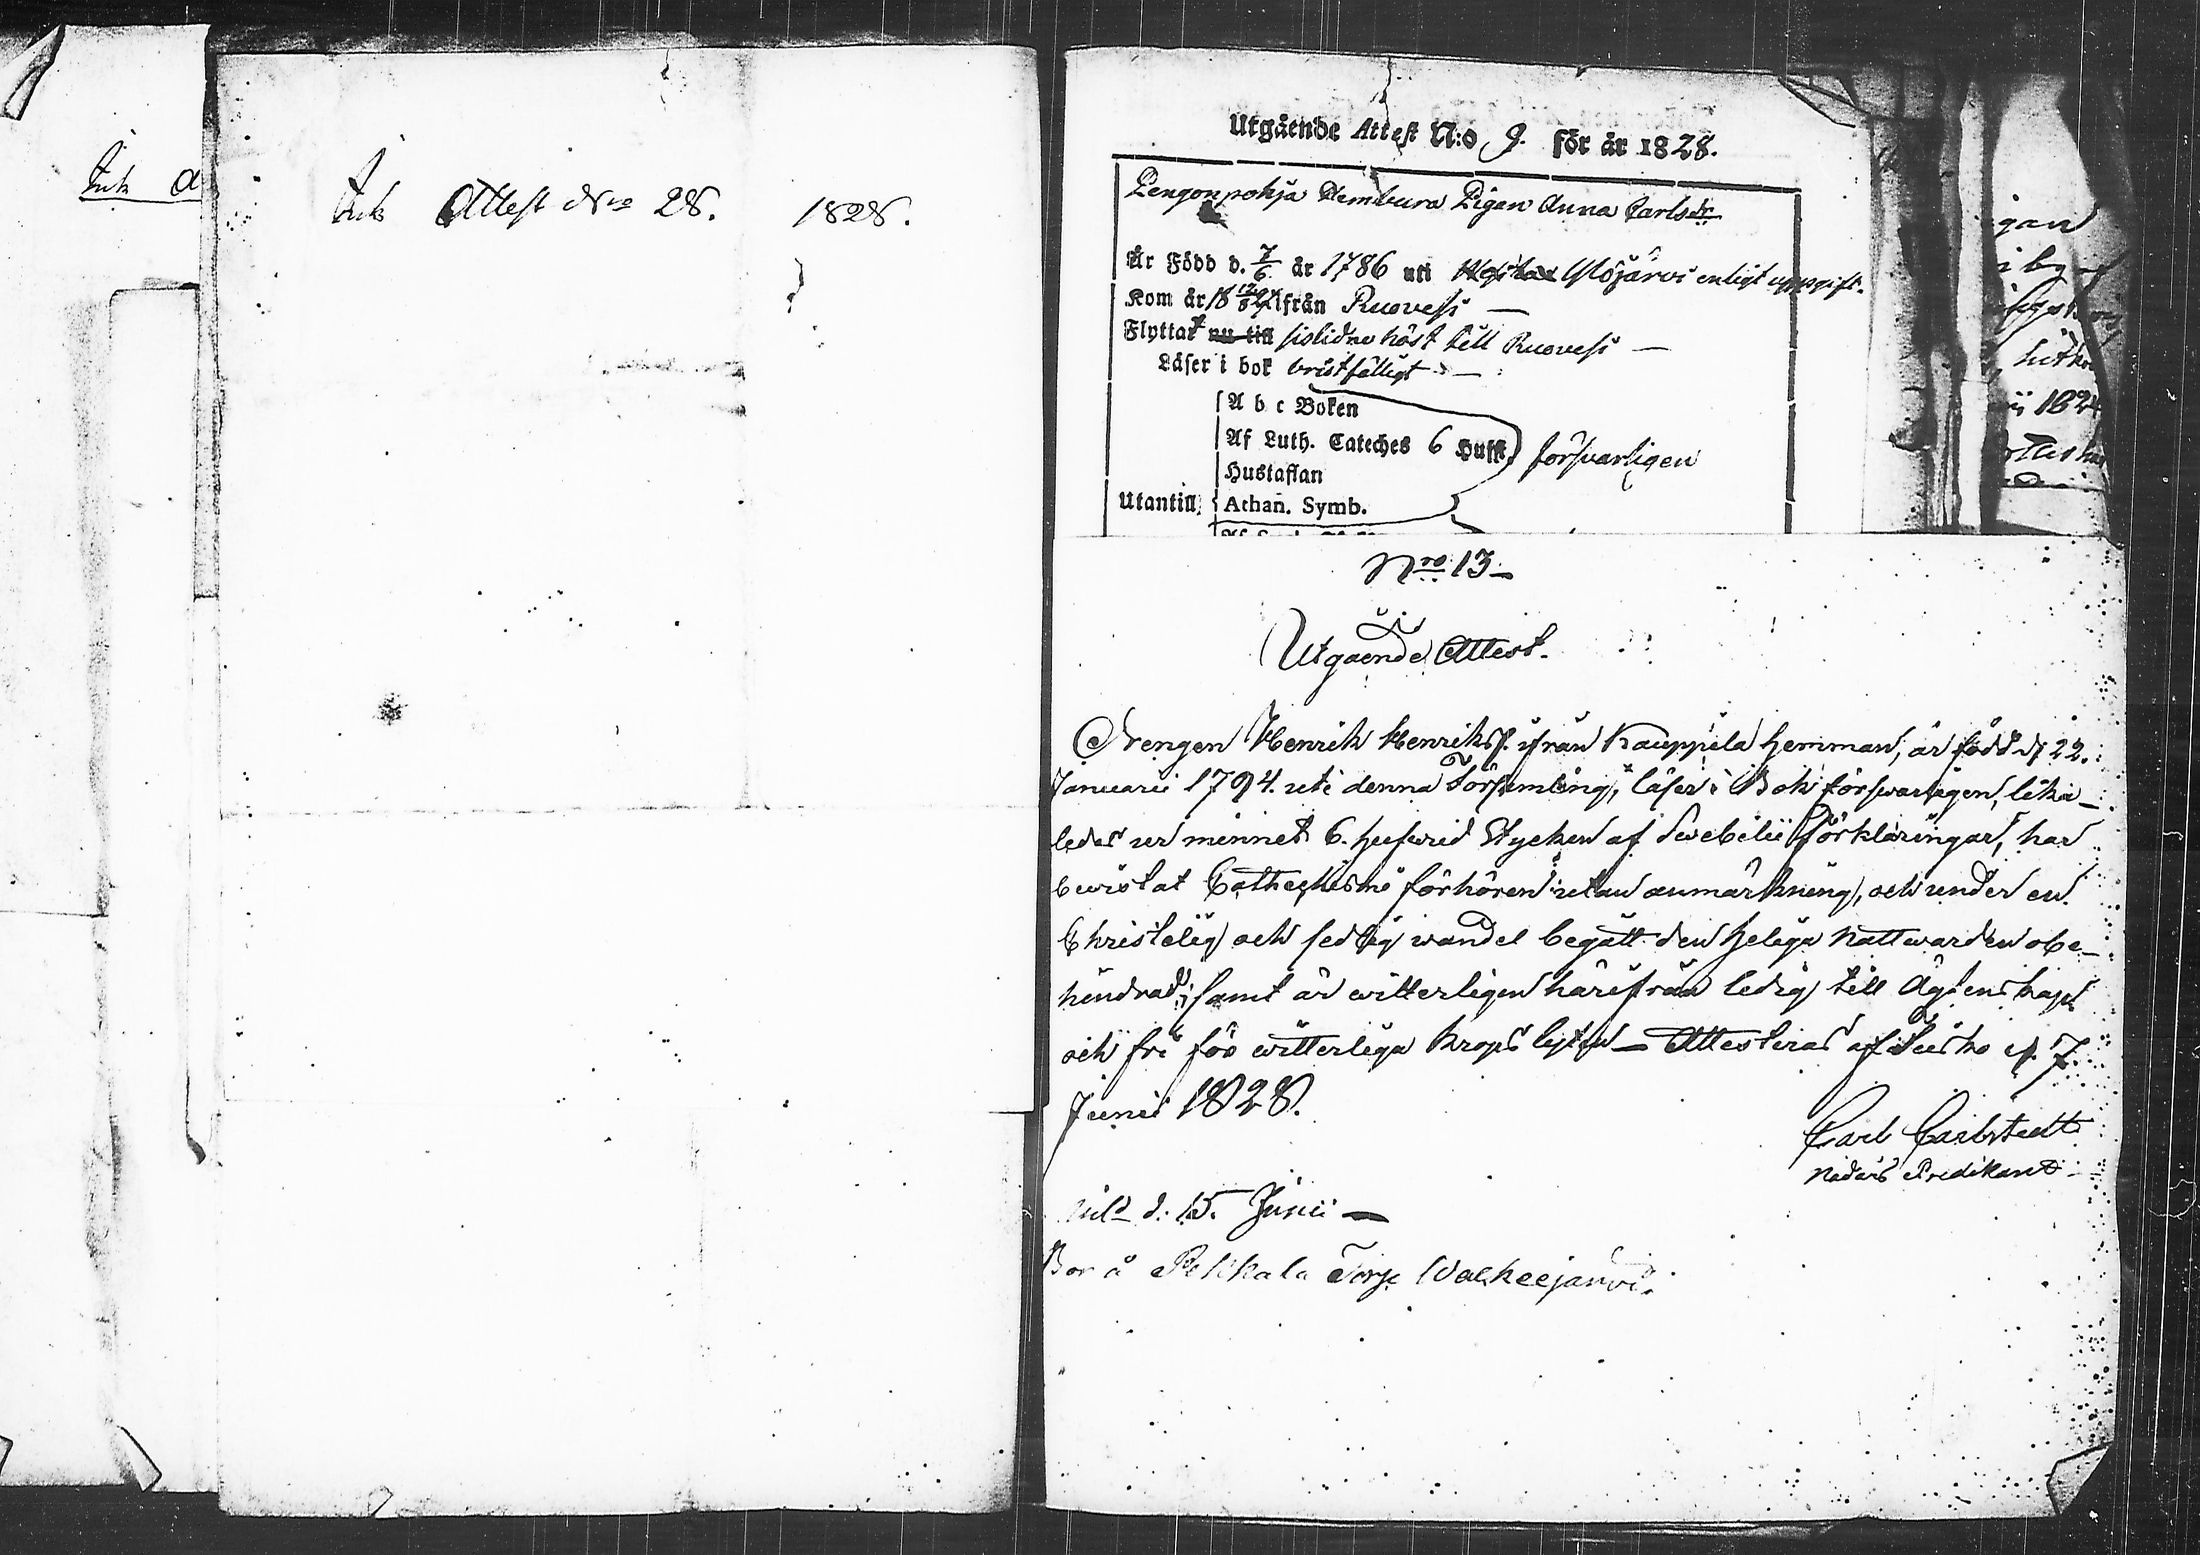 Ink A
Ink Attest Nro 28. 1828.
Utgående Attest N:o 9. för år 1828.
Pengonpohja Hembura Pigan Anna Carlsdr
Är Född d. 7/6 år 1786 uti Ylöjärvi enligt uppgift.
Kom år 18 ifrån Ruovesi —
Flyttat nu till sislidne höst till Ruovesi —
Läser i bok bristfälligt —
A b c Boken
Af Luth. Cateches 6 Hufst. försvarligen
Hustaflan
Utantill Athan. Symb.
gan
i by
hit
ii 182
Nro 13 —
Utgående Attest.
Drengen Henrik Henriksf. ifrån Kauppila hemman, är född d. 22.
Januarii 1794. uti denna Församling, läser i Bok försvarligen, lika-
ledes ur minnet 6. hufwud Stycken af Swebilii förklaringar, har
bewistat Cathechismi förhören utan anmärkning, och under en
Christelig och sedlig wandel begått den Heliga Nattwarden obe-
hindrad; samt är witterligen härifrån ledig till Ägtenskap
och fri för witterliga Krops lyten — Attesteras af d. 7.
Junii 1828.
Carl Carlstedt
Nådårs Predikant
d. 15. Junii —
Bor å Pekkala Torp Walkeejärvi.